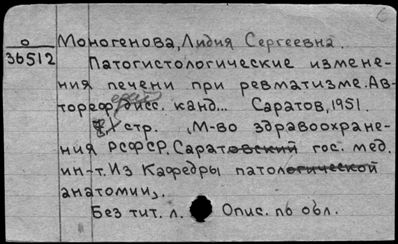 о
36512
Моногенова, Лидия Сергеевна.
Патогистологические измене-
ния печени при ревматизме. Ав-
тореф. дисс. канд... Саратов, 1951.
стр. (М-во здравоохране-
ния РСФСР. Саратовский гос. мед.
ин-т. Из Кафедры патологической
анатомии).
Без тит. л. Опис. по обл.